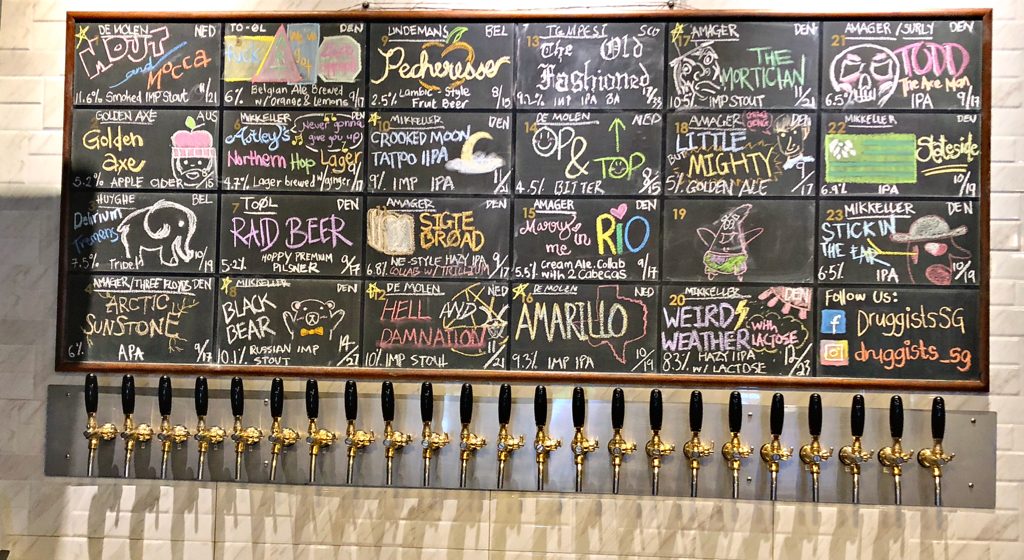 DE MOLEN NED
NOUT
and
Mocca
11.6% Smoked IMP Stout /21
GOLDEN AXE AUS
Golden
axe
5.2% APPLE CIDER
HUYGHE BEL
Delirium
Tremens
7.5% Tripel 10/19
4 AMAGER/THREE FLOYDS DEN
ARCTIC
SUNSTONE
6% APA 9/17
TO-ØL DEN
6% Belgian Ale Brewed
w/ orange & Lemons 9/17
MIKKELLER DEN
Astley's
Never gonna
give you up
Northern Hop Lager
4.7% Lager brewed w/ginger /17
7 TOØL DEN
RAID BEER
5.2% HOPPY PREMIUM
PILSNER 9/17
8 MIKKELLER DEN
BLACK
BEAR
10.1% RUSSIAN IMP
STOUT 14/27
9 LINDEMANS BEL
Pecheresse
2.5% Lambic Style
Fruit Beer 8/15
10 MIKKELLER DEN
CROOKED MOON
TATTOO IIPA
9% IMP IPA 11/21
AMAGER DEN
SIGTE
BRØAD
6.8% NE-STYLE HAZY IPA
COLAB W/ TRILLIUM 9/17
12 DE MOLEN NED
HELL AND
DAMNATION
10% IMP STOUT 11/21
13 TEMPEST SCO
The Old
Fashioned
9.2% IMP IPA BA
14 DE MOLEN NED
OP
&
TOP
4.5% BITTER 8/15
15 AMAGER DEN
Marry
in
me RIO
5.5% Cream Ale. Collab
with 2 Cabeças 9/17
16 DE MOLEN NED
AMARILLO
9.3% IMP IPA 10/19
17 AMAGER DEN
THE
MORTICIAN
10.5% IMP STOUT 11/21
18 AMAGER DEN
LITTLE
BUT
MIGHTY
5% GOLDEN ALE /17
19
20 MIKKELLER DEN
WEIRD
WEATHER
with
LACTOSE
8.3% HAZY IIPA
W/ LACTOSE 12/23
21 AMAGER/SURLY DEN
TODD
The Axe Man
6.5% IPA 9/17
22 MIKKELLER DEN
Stateside
6.9% IPA 10/19
23 MIKKELLER DEN
STICK IN
THE EAR
6.5% IPA 10/19
Follow Us:
f DruggistsSG
druggists_sg